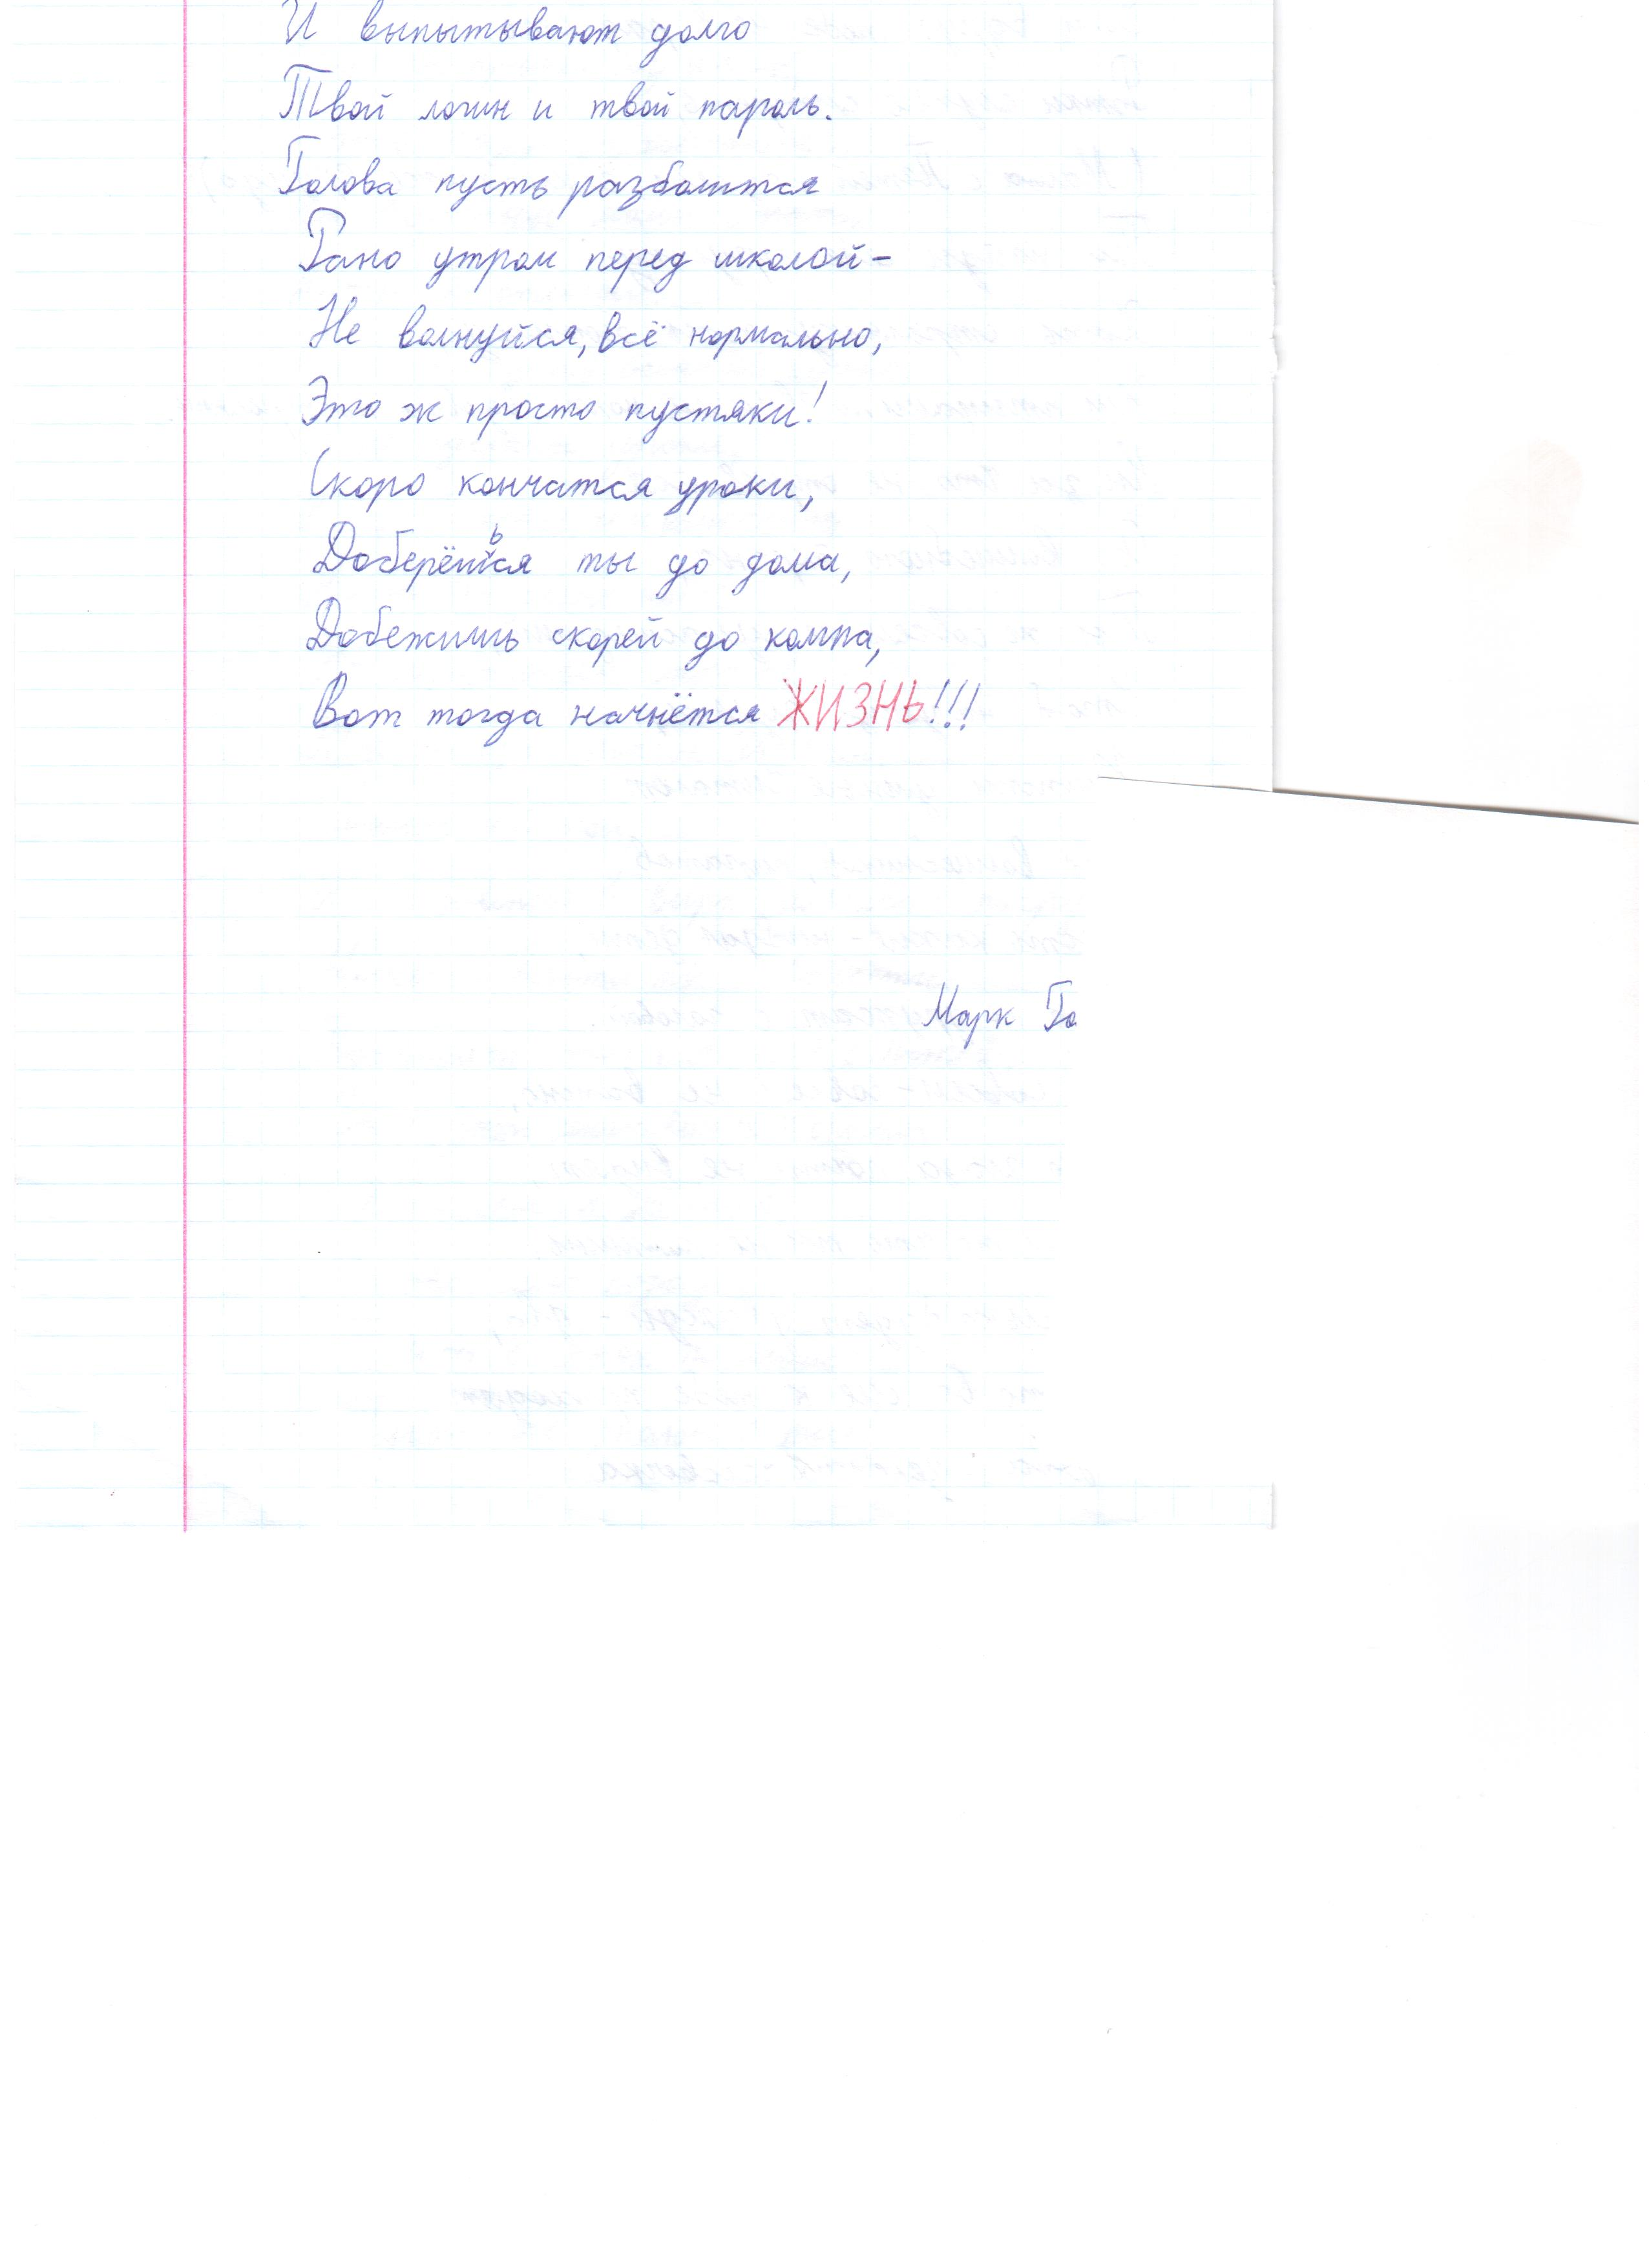 И выпытывают долго
Твой логин и твой пароль.
Голова пусть разболится
Рано утром перед школой-
Не волнуйся, всё нормально,
Это ж просто пустяки!
Скоро кончатся уроки,
Доберёшься ты до дома,
Добежишь скорей до компа,
Вот тогда начнётся ЖИЗНЬ!!!
Марк Го